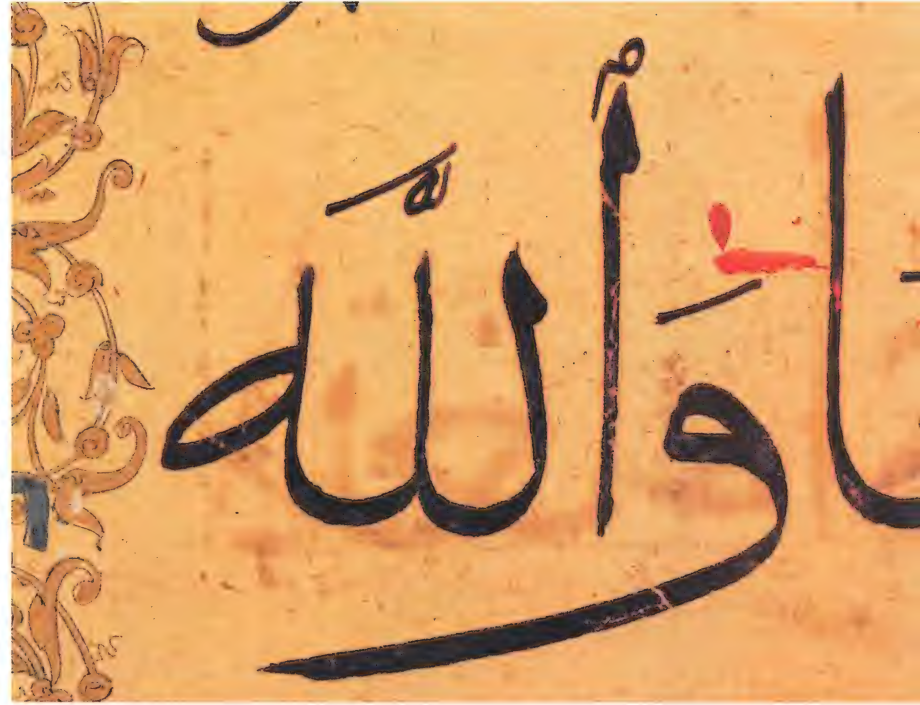 وَٱللَّه